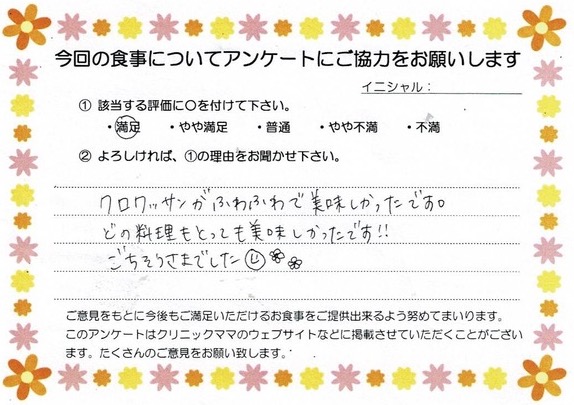 今回の食事についてアンケートにご協力をお願いします
イニシャル：
① 該当する評価に○を付けて下さい。
・満足 ・やや満足 ・普通 ・やや不満 ・不満
② よろしければ、①の理由をお聞かせ下さい。
クロワッサンがふわふわで美味しかったです。
どの料理もとっても美味しかったです!!
ごちそうさまでした
ご意見をもとに今後もご満足いただけるお食事をご提供出来るよう努めてまいります。
このアンケートはクリニックママのウェブサイトなどに掲載させていただくことがござい
ます。たくさんのご意見をお願い致します。